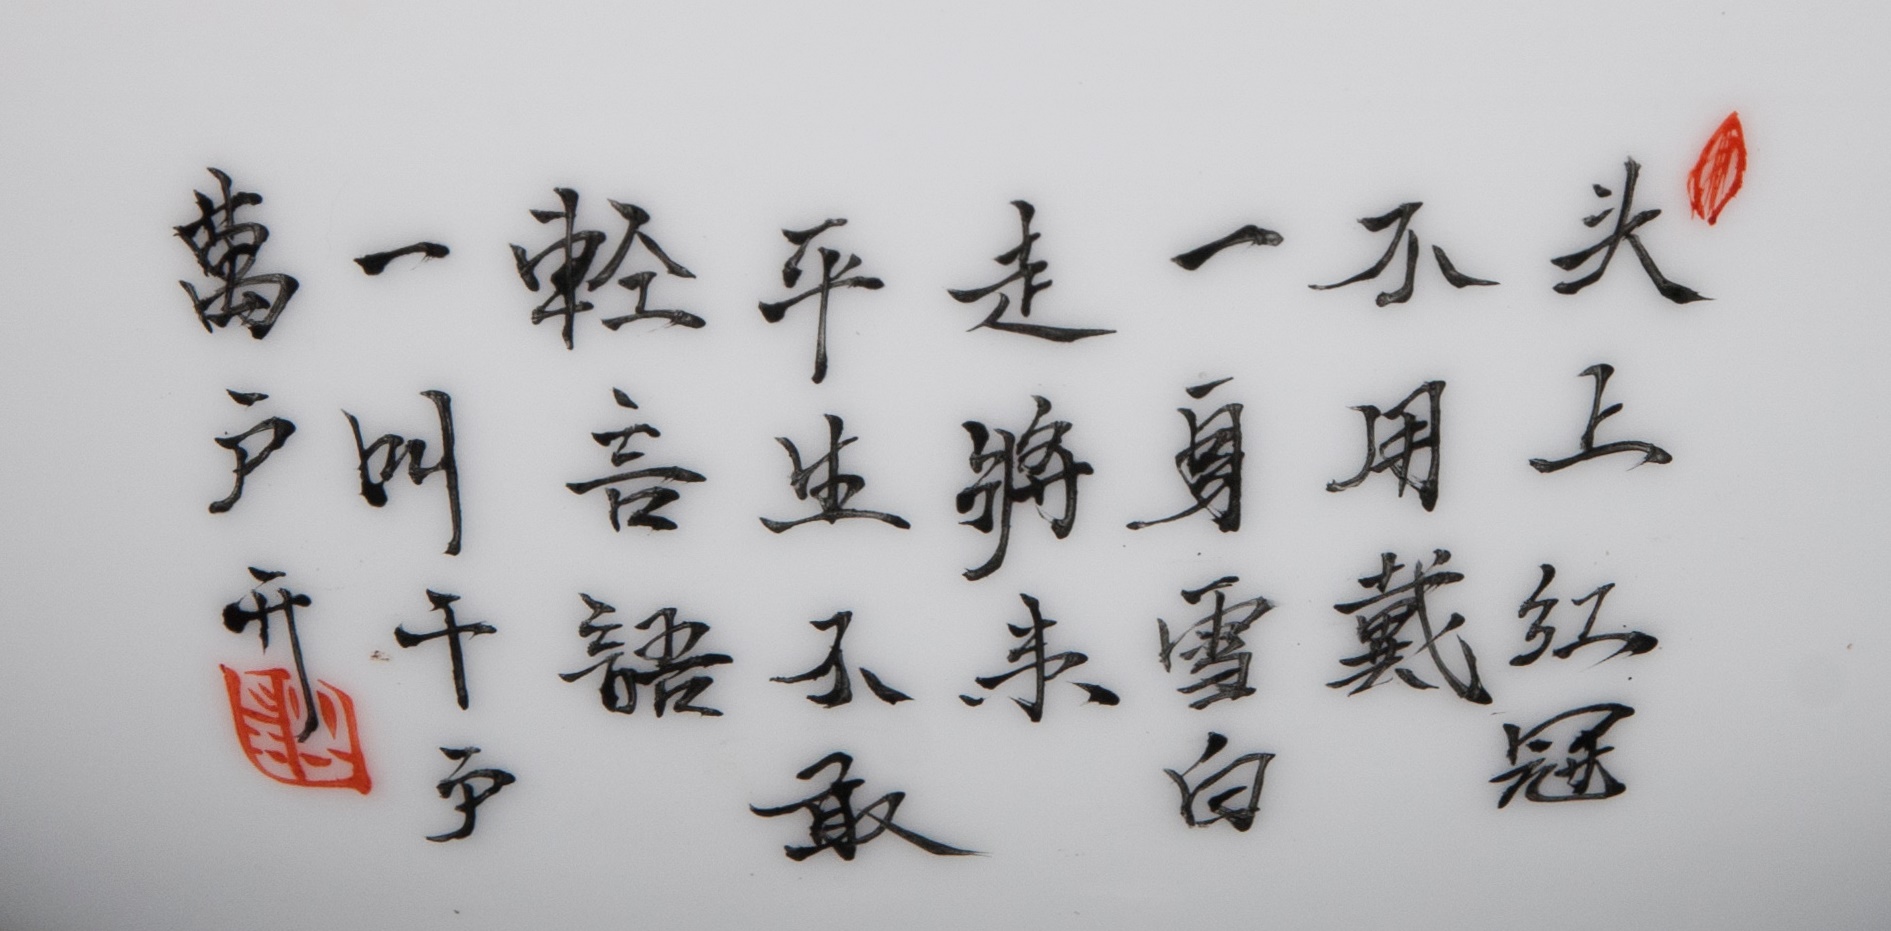 头上红冠
不用戴
一身雪白
走将来
平生不敢
軽言語
一叫千户
萬户开